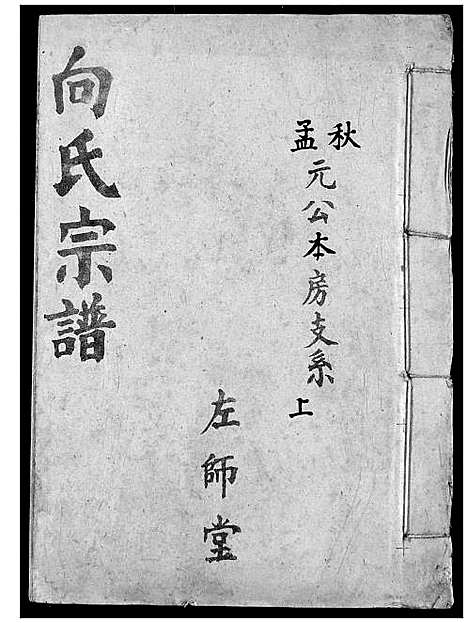 秋
孟元公本房支系 上
左師堂
向氏宗譜